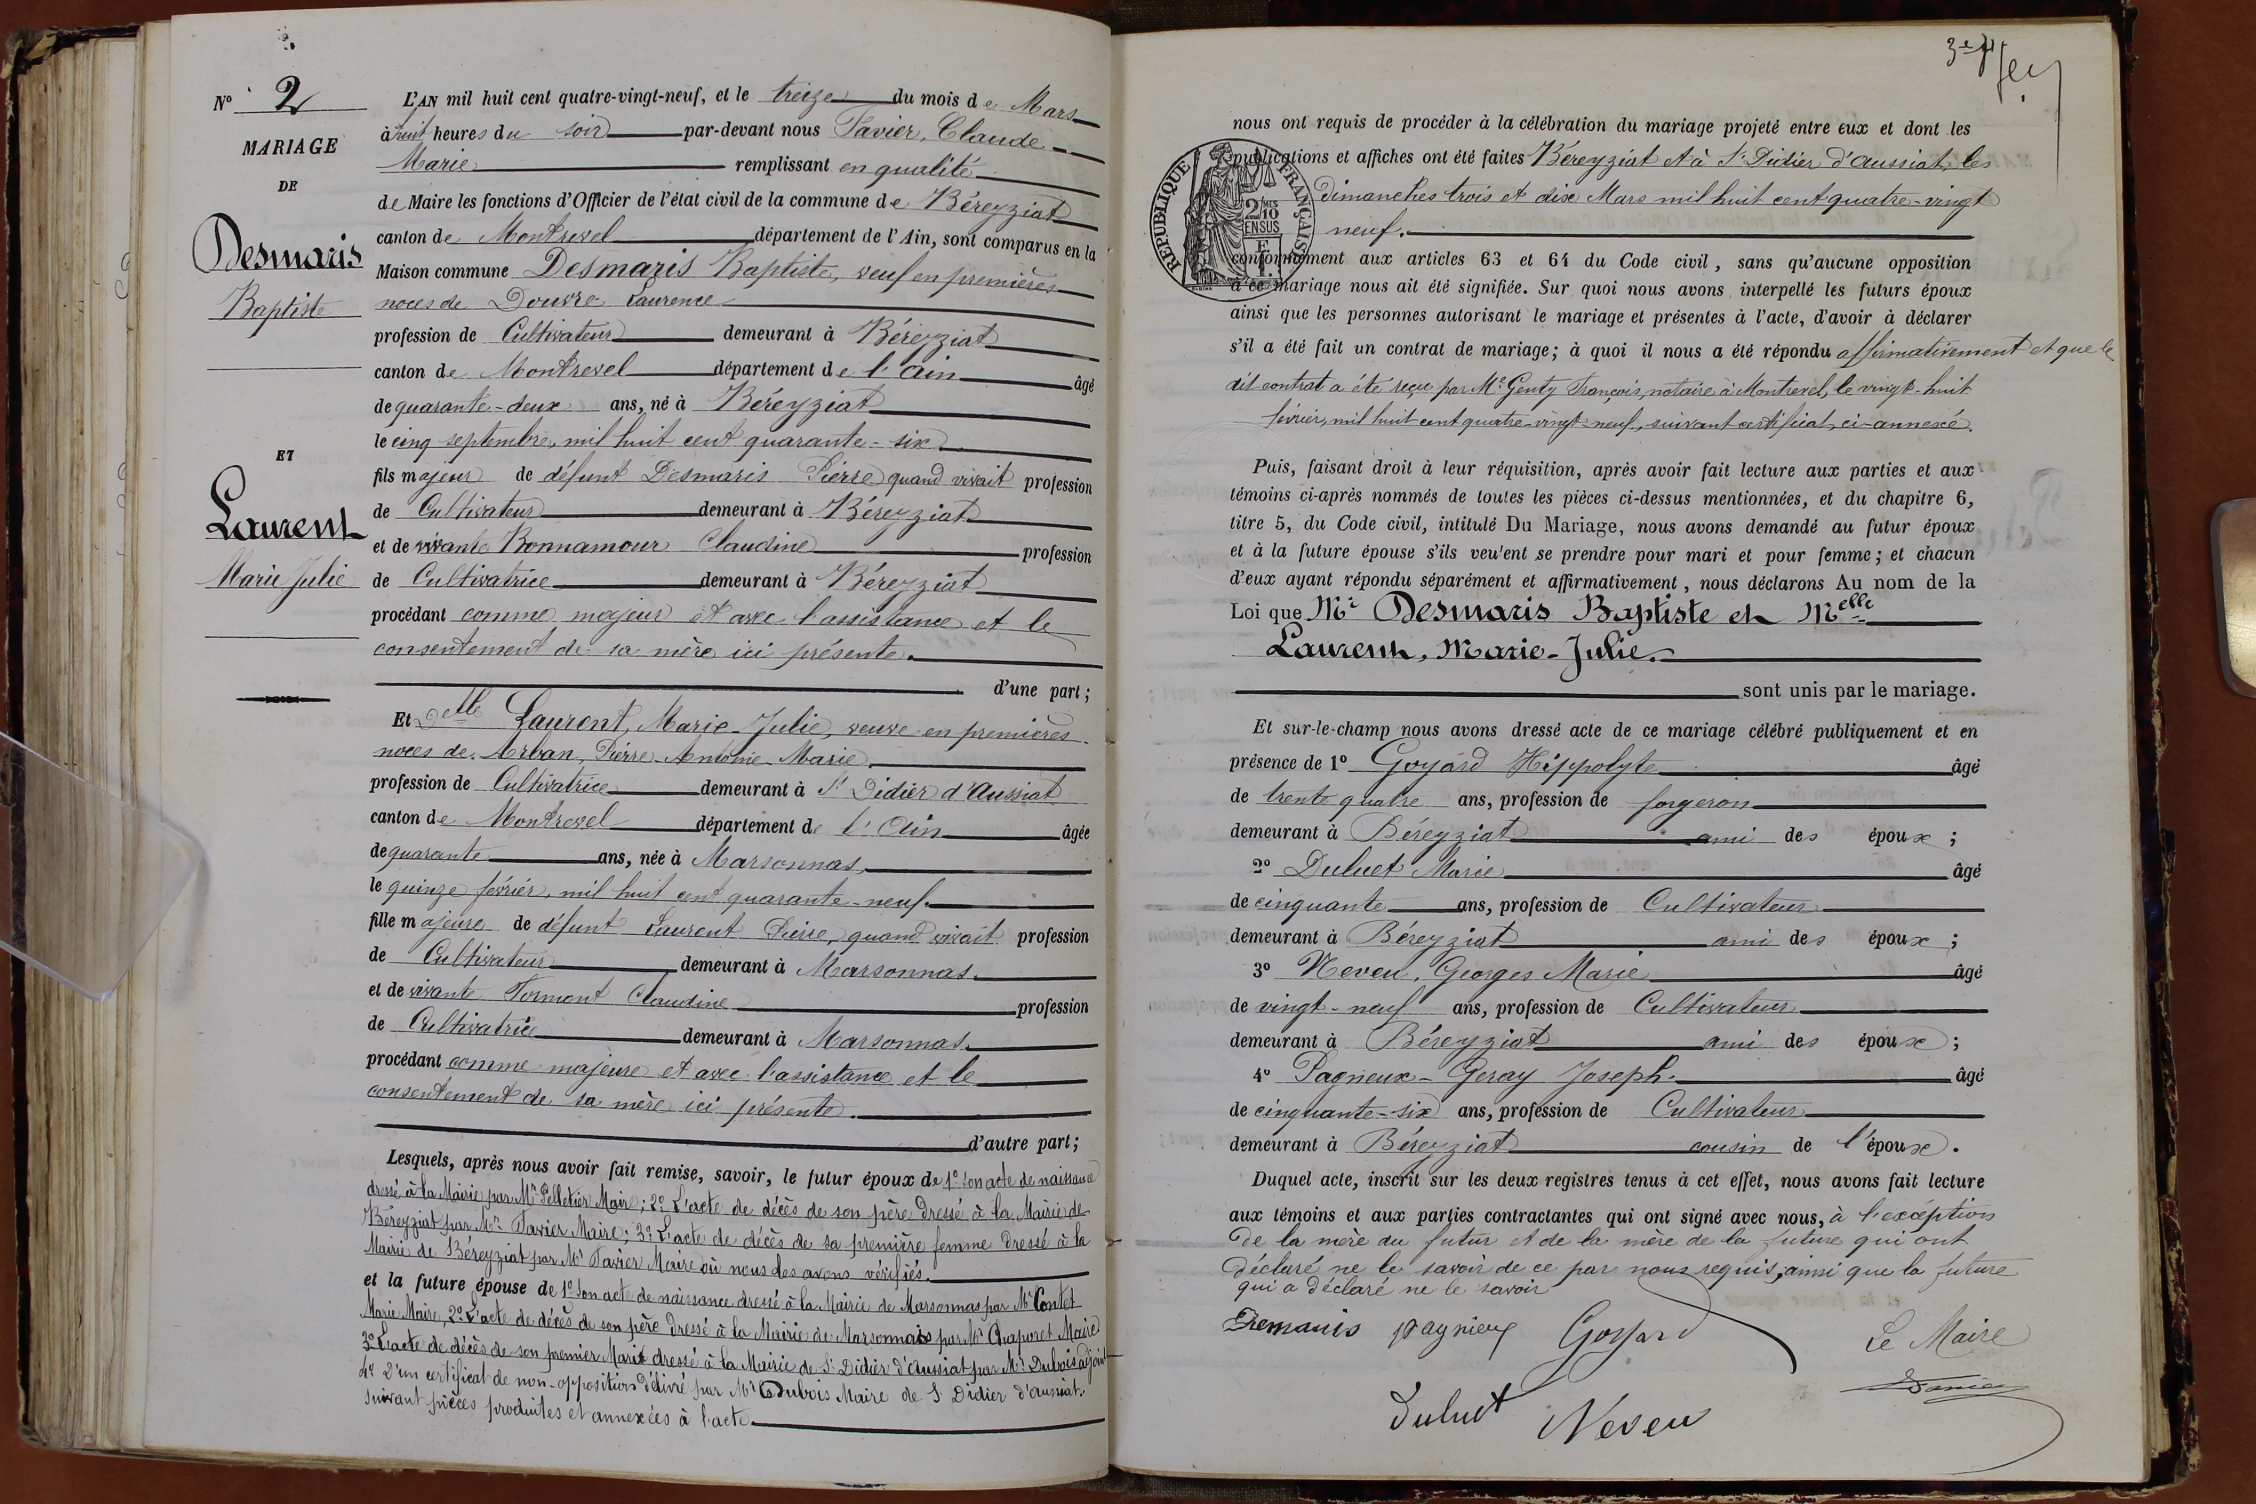 N° 2
MARIAGE
DE
Desmaris
Baptiste
ET
Laurent
Marie Julie
L'AN mil huit cent quatre-vingt-neuf, et le treize du mois de Mars
à huit heures du soir par-devant nous Favier, Claude
Marie remplissant en qualité
de Maire les fonctions d'Officier de l'état civil de la commune de Béreyziat
canton de Montrevel département de l'Ain, sont comparus en la
Maison commune Desmaris Baptiste, veuf en premières
noces de Douvre Laurence
profession de Cultivateur demeurant à Béreyziat
canton de Montrevel département de l'Ain âgé
de quarante-deux ans, né à Béreyziat
le cinq septembre, mil huit cent quarante-six
fils majeur de défunt Desmaris Pierre quand vivait profession
de Cultivateur demeurant à Béreyziat
et de vivante Bonnamour Claudine profession
de Cultivatrice demeurant à Béreyziat
procédant comme majeur et avec l'assistance et le
consentement de sa mère ici présente.
d'une part;
Et Delle Laurent, Marie-Julie, veuve en premières
noces de Arban, Pierre-Antonie-Marie
profession de Cultivatrice demeurant à St Didier d'Aussiat
canton de Montrevel département de l'Ain âgée
de quarante ans, née à Marsonnas,
le quinze février, mil huit cent quarante-neuf.
fille majeure de défunt Laurent Pierre, quand vivait profession
de Cultivateur demeurant à Marsonnas.
et de vivante Tormont Claudine profession
de Cultivatrice demeurant à Marsonnas.
procédant comme majeure et avec l'assistance et le
consentement de sa mère ici présente.
d'autre part;
Lesquels, après nous avoir fait remise, savoir, le futur époux de 1° Son acte de naissance
dressé à la Mairie par Mr Pelletier Maire; 2° L'acte de décès de son père dressé à la Mairie de
Béreyziat par Mr Favier Maire; 3° L'acte de décès de sa première femme dressé à la
Mairie de Béreyziat par Mr Favier Maire où nous les avons vérifiés.
et la future épouse de 1° Son acte de naissance dressé à la Mairie de Marsonnas par Mr Contet
Marie Maire, 2° L'acte de décès de son père dressé à la Mairie de Marsonnas par Mr Maire
3° L'acte de décès de son premier Mari dressé à la Mairie de St Didier d'Aussiat par Mr Dubois adjoint
4° D'un certificat de non-opposition délivré par Mr Dubois Maire de St Didier d'Aussiat.
suivant pièces produites et annexées à l'acte
3e
nous ont requis de procéder à la célébration du mariage projeté entre eux et dont les
publications et affiches ont été faites Béreyziat et à St Didier d'Aussiat, les
Dimanches trois et dix Mars mil huit cent quatre-vingt
neuf.
RÉPUBLIQUE FRANÇAISE
2/10
EN SUS
conformément aux articles 63 et 64 du Code civil, sans qu'aucune opposition
à ce mariage nous ait été signifiée. Sur quoi nous avons interpellé les futurs époux
ainsi que les personnes autorisant le mariage et présentes à l'acte, d'avoir à déclarer
s'il a été fait un contrat de mariage; à quoi il nous a été répondu affirmativement et que le
dit contrat a été reçu par Me Genty François, notaire à Montrevel, le vingt-huit
février, mil huit cent quatre-vingt-neuf, suivant certificat, ci-annexé.
Puis, faisant droit à leur réquisition, après avoir fait lecture aux parties et aux
témoins ci-après nommés de toutes les pièces ci-dessus mentionnées, et du chapitre 6,
titre 5, du Code civil, intitulé Du Mariage, nous avons demandé au futur époux
et à la future épouse s'ils veulent se prendre pour mari et pour femme; et chacun
d'eux ayant répondu séparément et affirmativement, nous déclarons Au nom de la
Loi que Mr Desmaris Baptiste et Melle
Laurent, Marie-Julie.
sont unis par le mariage.
Et sur-le-champ nous avons dressé acte de ce mariage célébré publiquement et en
présence de 1° Goyard Hippolyte âgé
de trente quatre ans, profession de forgeron
demeurant à Béreyziat ami des époux;
2° Duluet Marie âgé
de cinquante ans, profession de Cultivateur
demeurant à Béreyziat ami des époux;
3° Neveu, Georges Marie âgé
de vingt-neuf ans, profession de Cultivateur
demeurant à Béreyziat ami des époux;
4° Pagneux-Geray Joseph. âgé
de cinquante-six ans, profession de Cultivateur
demeurant à Béreyziat cousin de l'époux.
Duquel acte, inscrit sur les deux registres tenus à cet effet, nous avons fait lecture
aux témoins et aux parties contractantes qui ont signé avec nous, à l'excéption
de la mère du futur et de la mère de la future qui ont
déclaré ne le savoir de ce par nous requis, ainsi que la future
qui a déclaré ne le savoir
Demaris pagnieux Goyard Le Maire
Favier
Duluet Neveu